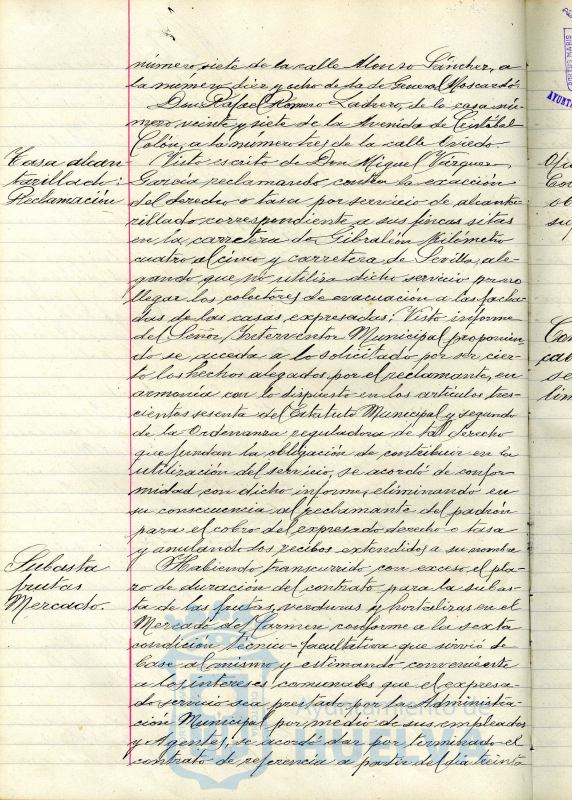 número siete de la calle Alonso Sánchez, a
la número diez y ocho de la de General Moscardó:
Don Rafael Romero Ladrero, de la casa nú-
mero veinte y siete de la Avenida de Cristóbal
Colón, a la número tres de la calle Oviedo.
Tasa alcan-
tarillado:
Reclamación
Visto escrito de Don Miguel Vázquez
García reclamando contra la exacción
del derecho o tasa por servicio de alcanta-
rillado correspondiente a sus fincas sitas
en la carretera de Gibraleón Kilómetro
cuatro al cinco y carretera de Sevilla, ale-
gando que no utiliza dicho servicio por no
llegar los colectores de evacuación a las facha-
das de las casas expresadas: Visto informe
del Señor Interventor Municipal proponien-
do se acceda a lo solicitado por ser cier-
to los hechos alegados por el reclamante, en
armonía con lo dispuesto en los artículos tres-
cientos sesenta del Estatuto Municipal y segundo
de la Ordenanza reguladora de tal derecho
que fundan la obligación de contribuir en la
utilización del servicio, se acordó de confor-
midad con dicho informe, eliminando en
su consecuencia al reclamante del padrón
para el cobro del expresado derecho o tasa
y anulando los recibos extendidos a su nombre
Subasta
frutas
Mercado.
Habiendo transcurrido con exceso el pla-
zo de duración del contrato para la subas-
ta de las frutas, verduras y hortalizas en el
Mercado del Carmen conforme a la sexta
condición técnico-facultativa que sirvió de
base al mismo y estimando conveniente
a los intereses comunales que el expresa-
do servicio sea prestado por la Administra-
ción Municipal por medio de sus empleados
y Agentes, se acordó dar por terminado el
contrato de referencia a partir del día treinta
Ayuntamiento de
HUELVA